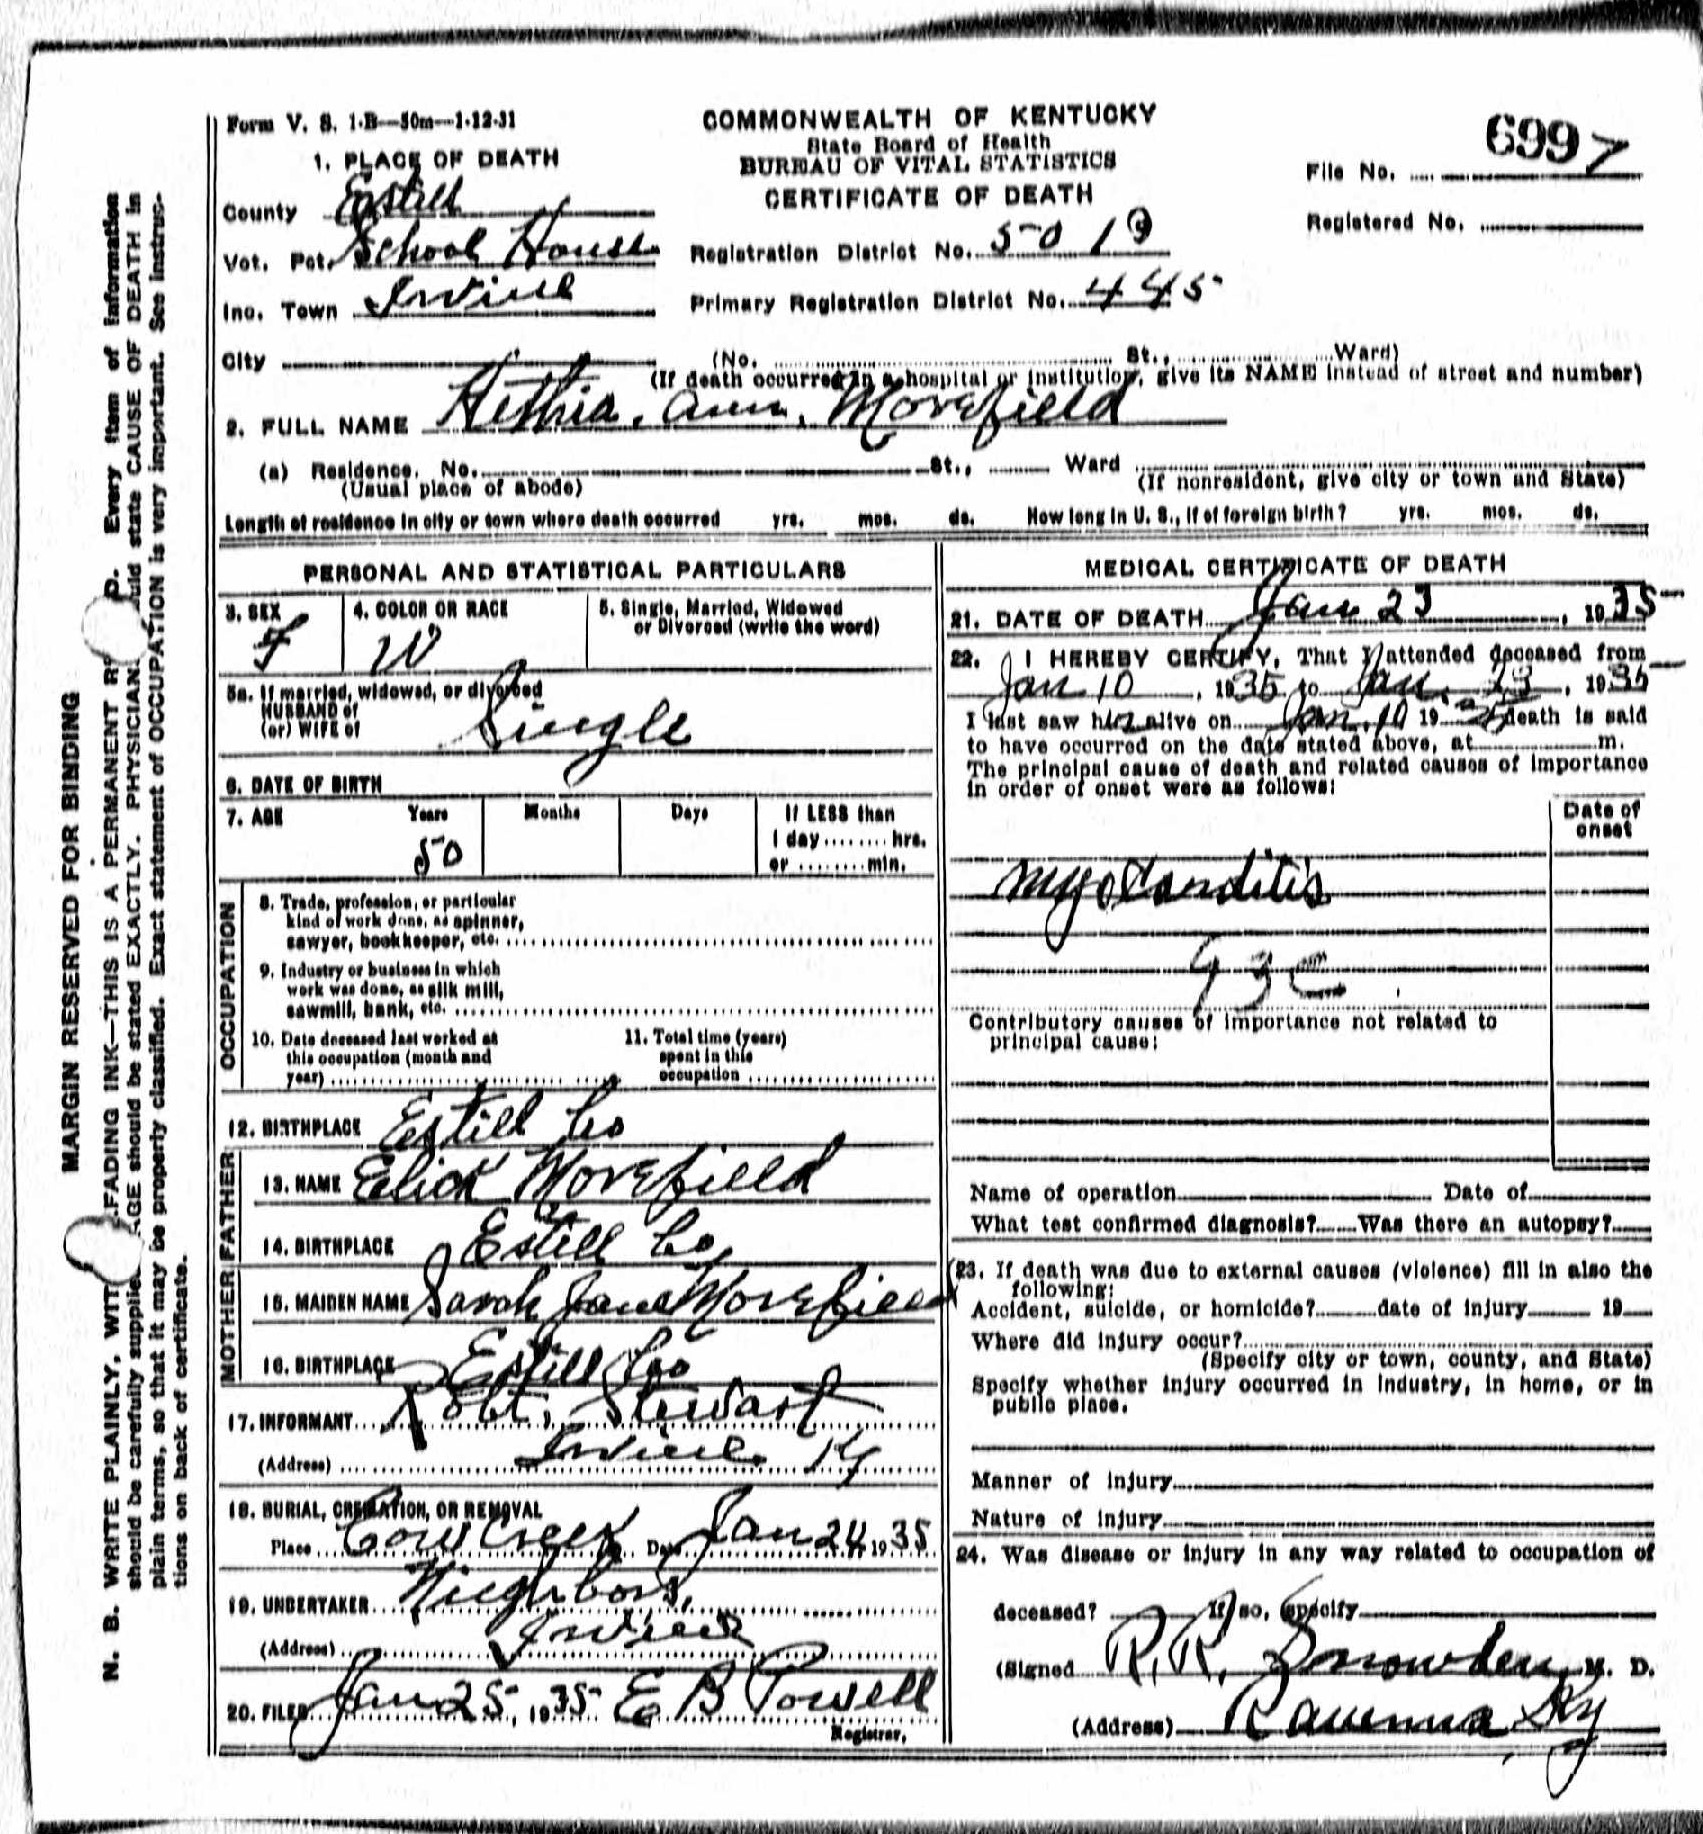 Form V. S. 1-B—50m—1-12-31
COMMONWEALTH OF KENTUCKY
State Board of Health
BUREAU OF VITAL STATISTICS
CERTIFICATE OF DEATH
File No. 6997
Registered No.
1. PLACE OF DEATH
County Estill
Vot. Pct. School House
Inc. Town Irvine
City
Registration District No. 5019
Primary Registration District No. 445
(No. St., Ward)
(If death occurred in a hospital or institution, give its NAME instead of street and number)
2. FULL NAME Hethia. Ann. Morefield
(a) Residence. No. St., Ward
(Usual place of abode) (If nonresident, give city or town and State)
Length of residence in city or town where death occurred yrs. mos. ds. How long in U. S., if of foreign birth? yrs. mos. ds.
PERSONAL AND STATISTICAL PARTICULARS
3. SEX F
4. COLOR OR RACE W
5. Single, Married, Widowed
or Divorced (write the word)
5a. If married, widowed, or divorced
HUSBAND of
(or) WIFE of
Single
6. DATE OF BIRTH
7. AGE Years Months Days If LESS than
1 day ........ hrs.
or ........ min.
50
OCCUPATION
8. Trade, profession, or particular
kind of work done, as spinner,
sawyer, bookkeeper, etc.
9. Industry or business in which
work was done, as silk mill,
sawmill, bank, etc.
10. Date deceased last worked at
this occupation (month and
year)
11. Total time (years)
spent in this
occupation
12. BIRTHPLACE Estill Co
FATHER
13. NAME Elick Morefield
14. BIRTHPLACE Estill Co,
MOTHER
15. MAIDEN NAME Sarah Jane Morefield
16. BIRTHPLACE Estill Co
17. INFORMANT Robt. Stewart
(Address) Irvine Ky
18. BURIAL, CREMATION, OR REMOVAL
Place Cow Creek Date Jan 24 1935
19. UNDERTAKER Nieghbors,
(Address) Irvine
20. FILED Jan 25, 1935 E B Powell
Registrar.
MEDICAL CERTIFICATE OF DEATH
21. DATE OF DEATH Jan 23, 1935
22. I HEREBY CERTIFY, That I attended deceased from
Jan 10, 1935 to Jan. 23, 1935
I last saw her alive on Jan. 10 1935 death is said
to have occurred on the date stated above, at m.
The principal cause of death and related causes of importance
in order of onset were as follows:
Date of
onset
Myocarditis
93C
Contributory causes of importance not related to
principal cause:
Name of operation Date of
What test confirmed diagnosis? Was there an autopsy?
23. If death was due to external causes (violence) fill in also the
following:
Accident, suicide, or homicide? date of injury 19
Where did injury occur?
(Specify city or town, county, and State)
Specify whether injury occurred in industry, in home, or in
public place.
Manner of injury
Nature of injury
24. Was disease or injury in any way related to occupation of
deceased? If so, specify
(Signed R. R. Snowden, M. D.
(Address) Ravenna Ky
MARGIN RESERVED FOR BINDING
N. B. WRITE PLAINLY, WITH FADING INK—THIS IS A PERMANENT R D. Every item of information
should be carefully supplied. AGE should be stated EXACTLY. PHYSICIANS should state CAUSE OF DEATH in
plain terms, so that it may be properly classified. Exact statement of OCCUPATION is very important. See instruc-
tions on back of certificate.